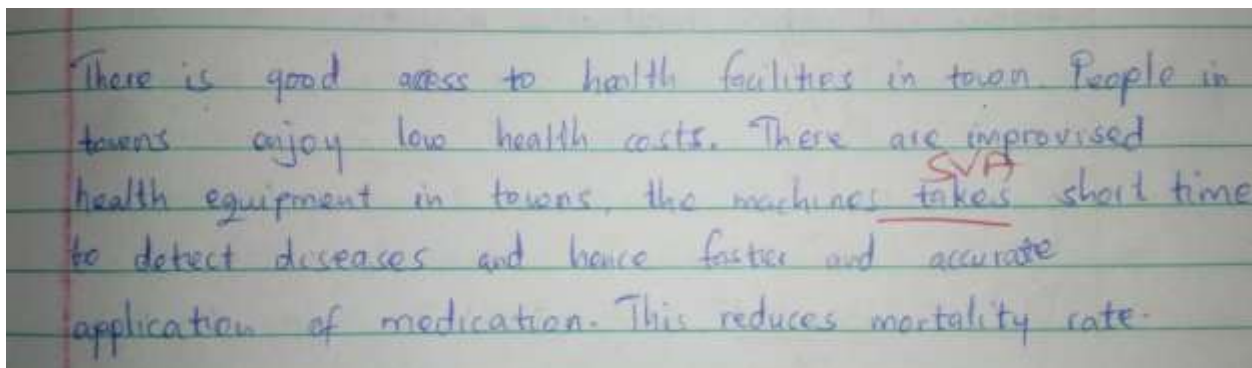 There is good access to health facilities in town. People in
towns enjoy low health costs. There are improvised
SVA
health equipment in towns, the machines takes short time
to detect diseases and hence faster and accurate
application of medication. This reduces mortality rate.